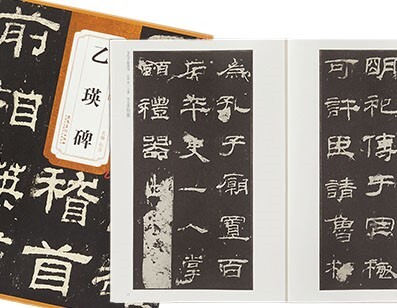 乙瑛碑
稽首
前相瑛
明祀傳于罔極
可許臣請魯相
為孔子廟置百
石卒史一人掌
領禮器